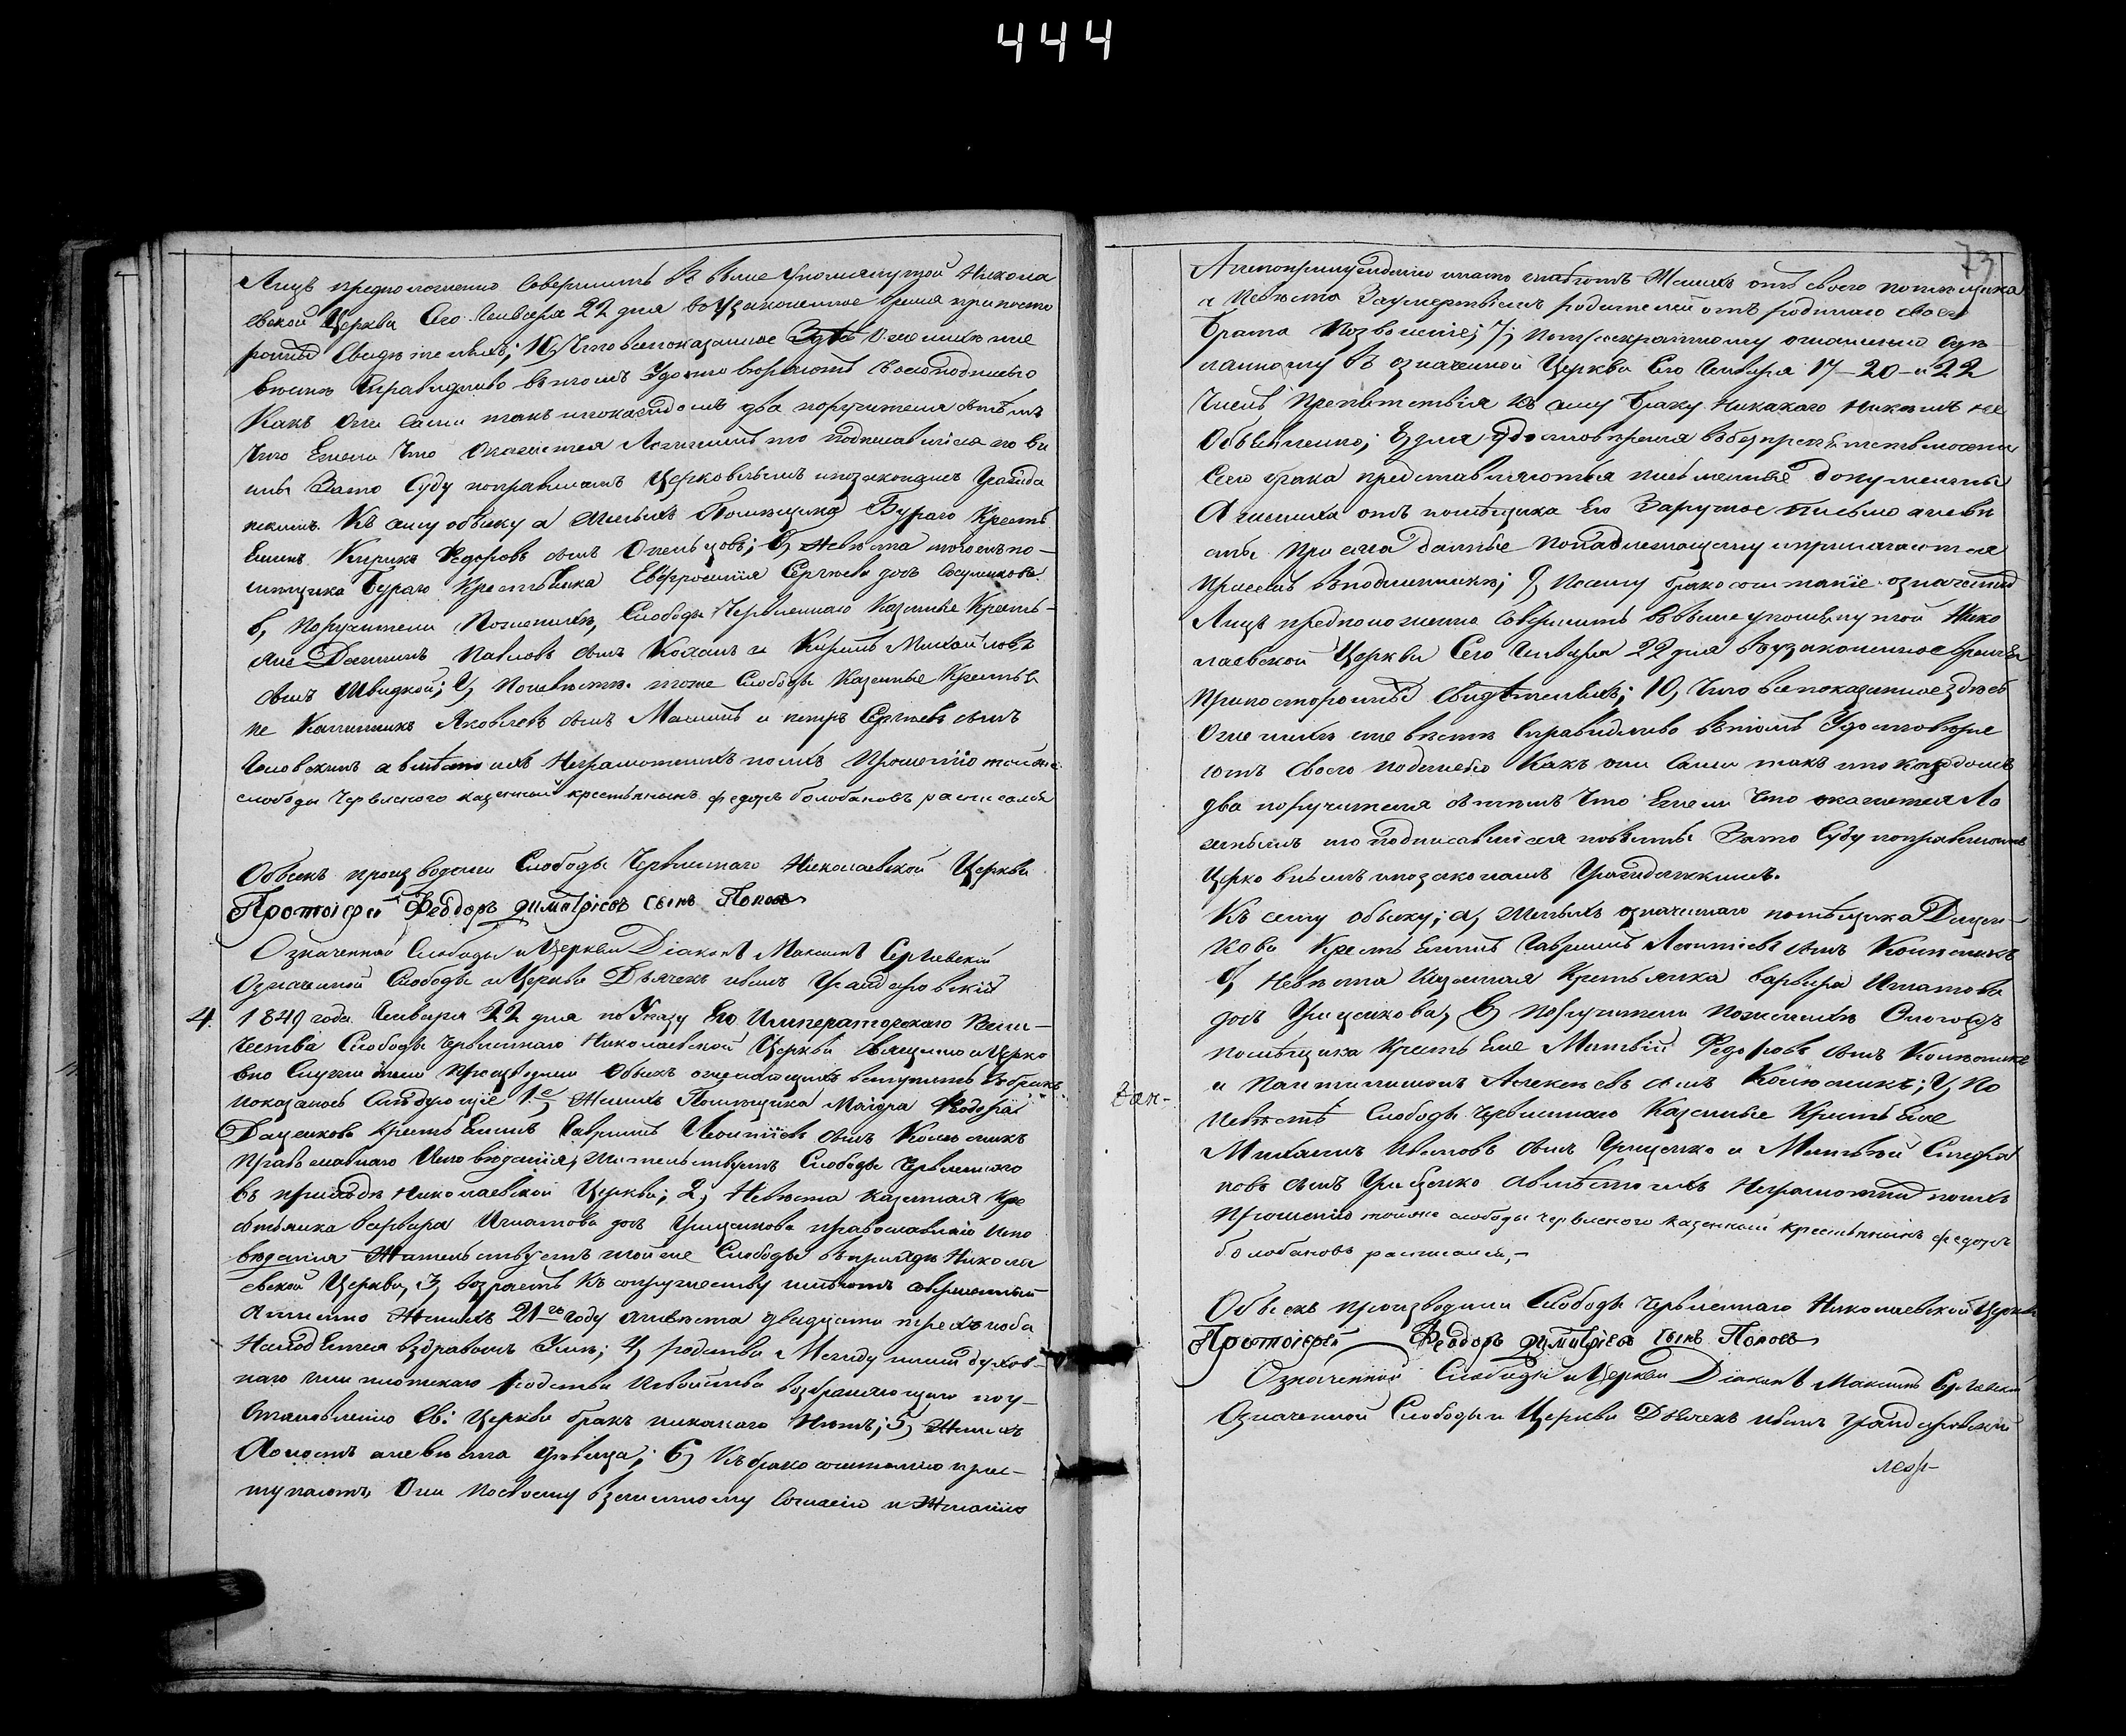 444
73
Лицъ предположенно Совершить въ выше упомянутой Никола
евской Церкви Сего Января 22 дня въ узаконенное время при посто
ронныхъ Свидетеляхъ; 10, Что все показанное Здѣсь О женихѣ и не
вѣстѣ Справедливо въ томъ Удостоверяютъ Своею подписью
Какъ Они Сами такъ и по каждомъ два поручителя съ тѣмъ
Что Ежели Что Окажется Ложнымъ то подписавшіеся по ви
нны Зато Суду по правиламъ Церковнымъ и по законамъ Гражда
нскимъ. Къ сему обыску а Женихъ Помѣщика Бураго Крестья
нинъ Кирикъ Федоровъ сынъ; б, Невѣста того же по-
мѣщика Бураго Крестьянка Евфросинія Сергѣева дочь
в, Поручители По женихѣ, Слободы Червленнаго Казенные Крестья-
не Даніилъ Павловъ сынъ Коханъ и Кирилъ Михайловъ
сынъ Швидкой; г, По невѣстѣ тоже Слободы Казенные Крестья
не Калинникъ Яковлевъ сынъ и петръ Сергѣевъ сынъ
а вмѣсто ихъ Неграмотныхъ по ихъ Прошенію той же
слободы Червленого казенный крестьянинъ федоръ болобановъ росписался
Обыскъ производили Слободы Червленнаго Николаевской Церкви
Протоіерей Феодоръ Димитріевъ сынъ Поповъ
Означенной Слободы и Церкви Діаконъ Максимъ Сергіевскій
Означенной Слободы и Церкви Дьячекъ иванъ
4. 1849 года Января 22 дня по Указу Его Императорскаго Вели-
чества Слободы Червленнаго Николаевской Церкви Священно и Церко
вно Служители Производили Обыскъ о желающихъ вступить въ бракъ
показалось Слѣдующіе 1е, Женихъ Помѣщика Маіора Федора
Даценкова Крестьянинъ Гавриилъ Леонтіевъ сынъ
Православнаго Исповѣданія, Жительствуетъ Слободы Червленного
въ приходѣ Николаевской Церкви; 2, Невѣста казенная Кре
стьянка варвара Игнатова дочь Грищенкова православнаго Испо
вѣданія Жительствуетъ той же Слободы въ приходѣ Никола
евской Церкви, 3, возрастъ къ супружеству имѣютъ совершенный
а именно Женихъ 21го году а невѣста двадцати трехъ и оба
Находятся в здравомъ Умѣ; 4, родства Между ними духов-
наго или плотскаго родства и свойства возбраняющаго по у-
становленію Св: Церкви бракъ никакого Нѣтъ; 5, Женихъ
Холостъ а невѣста дѣвица; 6, Къ бракосочетанію прис-
тупаютъ Они по своему взаимному Согласію и Желанію
А не по принужденію на то имѣютъ Женихъ отъ своего помѣщика
а Невѣста За умертвіемъ родителей отъ роднаго своего
брата Позволеніе; 7, По троекратному оглашенію Сдѣ
ланному въ означенной Церкви Сего Января 17-20-и 22
Чиселъ Препятствія къ сему браку Никакого Никѣмъ не
Объявленно; 8, для удостовѣренія в безпрепятственности
Сего брака представляются письменные документы
О женихѣ отъ помѣщика Его За ручное Письмо а невѣ
Присемъ въ подлинникѣ; 9, По сему бракосочетаніе означенныхъ
Лицъ предположенно Совершить въ выше упомянутой Нико
лаевской Церкви Сего Января 22 дня въ узаконенное время
При постороннихъ Свидѣтеляхъ; 10, Что все показанное здѣсь
О женихѣ и не вѣстѣ Справедливо въ томъ Удостовѣря
ютъ Своею подписью Какъ они Сами такъ и по каждомъ
два поручителя съ тѣмъ Что Ежели Что окажется Ло
жнымъ то подписавшіеся повинны Зато Суду по правиламъ
Церковнымъ и по законамъ Гражданскимъ.
Къ сему обыску; а, Женихъ означеннаго помѣщика Дацен-
кова Крестьянинъ Гавриилъ Леонтіевъ сынъ
б, Невѣста Казенная Крестьянка варвара Игнатова
дочь Грищенкова; в, Поручители По женихѣ Оногожъ
помѣщика Крестьяне Матвѣй Федоровъ сынъ
и Пантилимонъ Алексѣевъ сынъ; г, По
Невѣстѣ Слободы Червленнаго Казенные Крестьяне
Михаилъ Ивановъ сынъ Грищенко и Матвѣй
новъ сынъ Грищенко а вмѣсто ихъ Неграмотныхъ по ихъ
Прошенію той же слободы червленого казенный крестьянинъ федоръ
болобановъ росписался,-
Обыскъ производили Слободы Червленнаго Николаевской Церкви
Протоіерей Феодоръ Димитріевъ сынъ Поповъ
Означенной Слободы и Церкви Діаконъ Максимъ Сергіевскій
Означенной Слободы и Церкви Дьячекъ иванъ